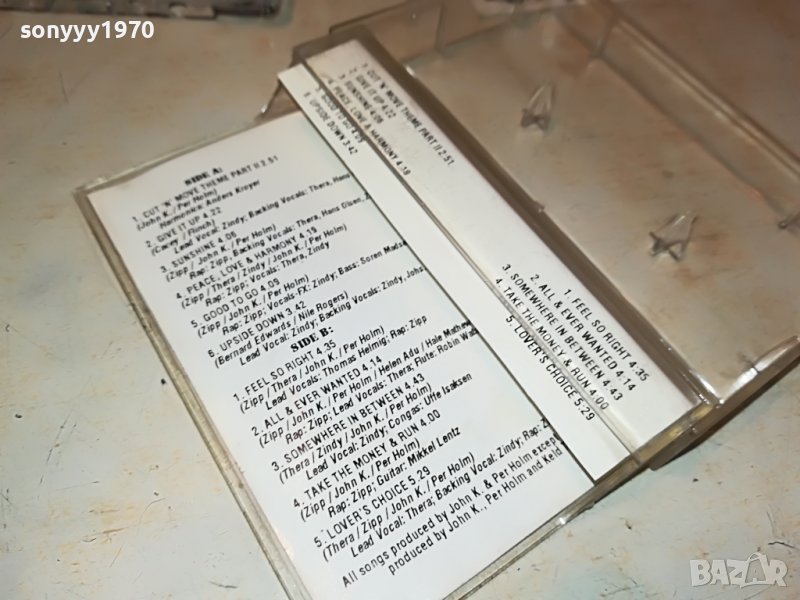 sonyyy1970
SIDE A:
1. CUT 'N' MOVE THEME PART II 2.51
(John K./Per Holm)
Harmonica: Anders Kroyer
2. GIVE IT UP 4.22
(Casey / Finch)
Lead Vocal: Zindy; Backing Vocals: Thera, Hans
3. SUNSHINE 4.06
(Zipp / John K./Per Holm)
Rap: Zipp; Backing Vocals: Thera, Hans Olsen,
4. PEACE, LOVE & HARMONY 4.19
(Zipp / Thera / Zindy / John K./ Per Holm)
Rap: Zipp; Vocals: Thera, Zindy
5. GOOD TO GO 4.09
(Zipp / John K./Per Holm)
Rap: Zipp; Vocals-FX: Zindy; Bass: Soren
6. UPSIDE DOWN 3.42
(Bernard Edwards / Nile Rogers)
Lead Vocal: Zindy; Backing Vocals: Zindy,
SIDE B:
1. FEEL SO RIGHT 4.35
(Zipp / Thera / John K./ Per Holm)
Lead Vocals: Thomas Helmig; Rap: Zipp
2. ALL & EVER WANTED 4.14
(Zipp / John K./ Per Holm / Helen Adu / Hale
Rap: Zipp; Lead Vocals: Thera; Flute: Robin
3. SOMEWHERE IN BETWEEN 4.43
(Thera / Zindy / John K./Per Holm)
Lead Vocal: Zindy; Congas: Uffe Isaksen
4. TAKE THE MONEY & RUN 4.00
(Zipp / John K./ Per Holm)
Rap: Zipp; Guitar: Mikkel Lentz
5. LOVER'S CHOICE 5.29
(Thera / Zipp / John K./ Per Holm)
Lead Vocal: Thera; Backing Vocal: Zindy; Rap:
All songs produced by John K. & Per Holm
produced by John K., Per Holm and Keld
CUT 'N' MOVE THEME PART II 2.51
GIVE IT UP 4.22
SUNSHINE 4.06
PEACE, LOVE & HARMONY 4.19
GOOD TO GO 4.09
6. UPSIDE DOWN 3.42
1. FEEL SO RIGHT 4.35
2. ALL & EVER WANTED 4.14
3. SOMEWHERE IN BETWEEN 4.43
4. TAKE THE MONEY & RUN 4.00
5. LOVER'S CHOICE 5.29
BAZAR